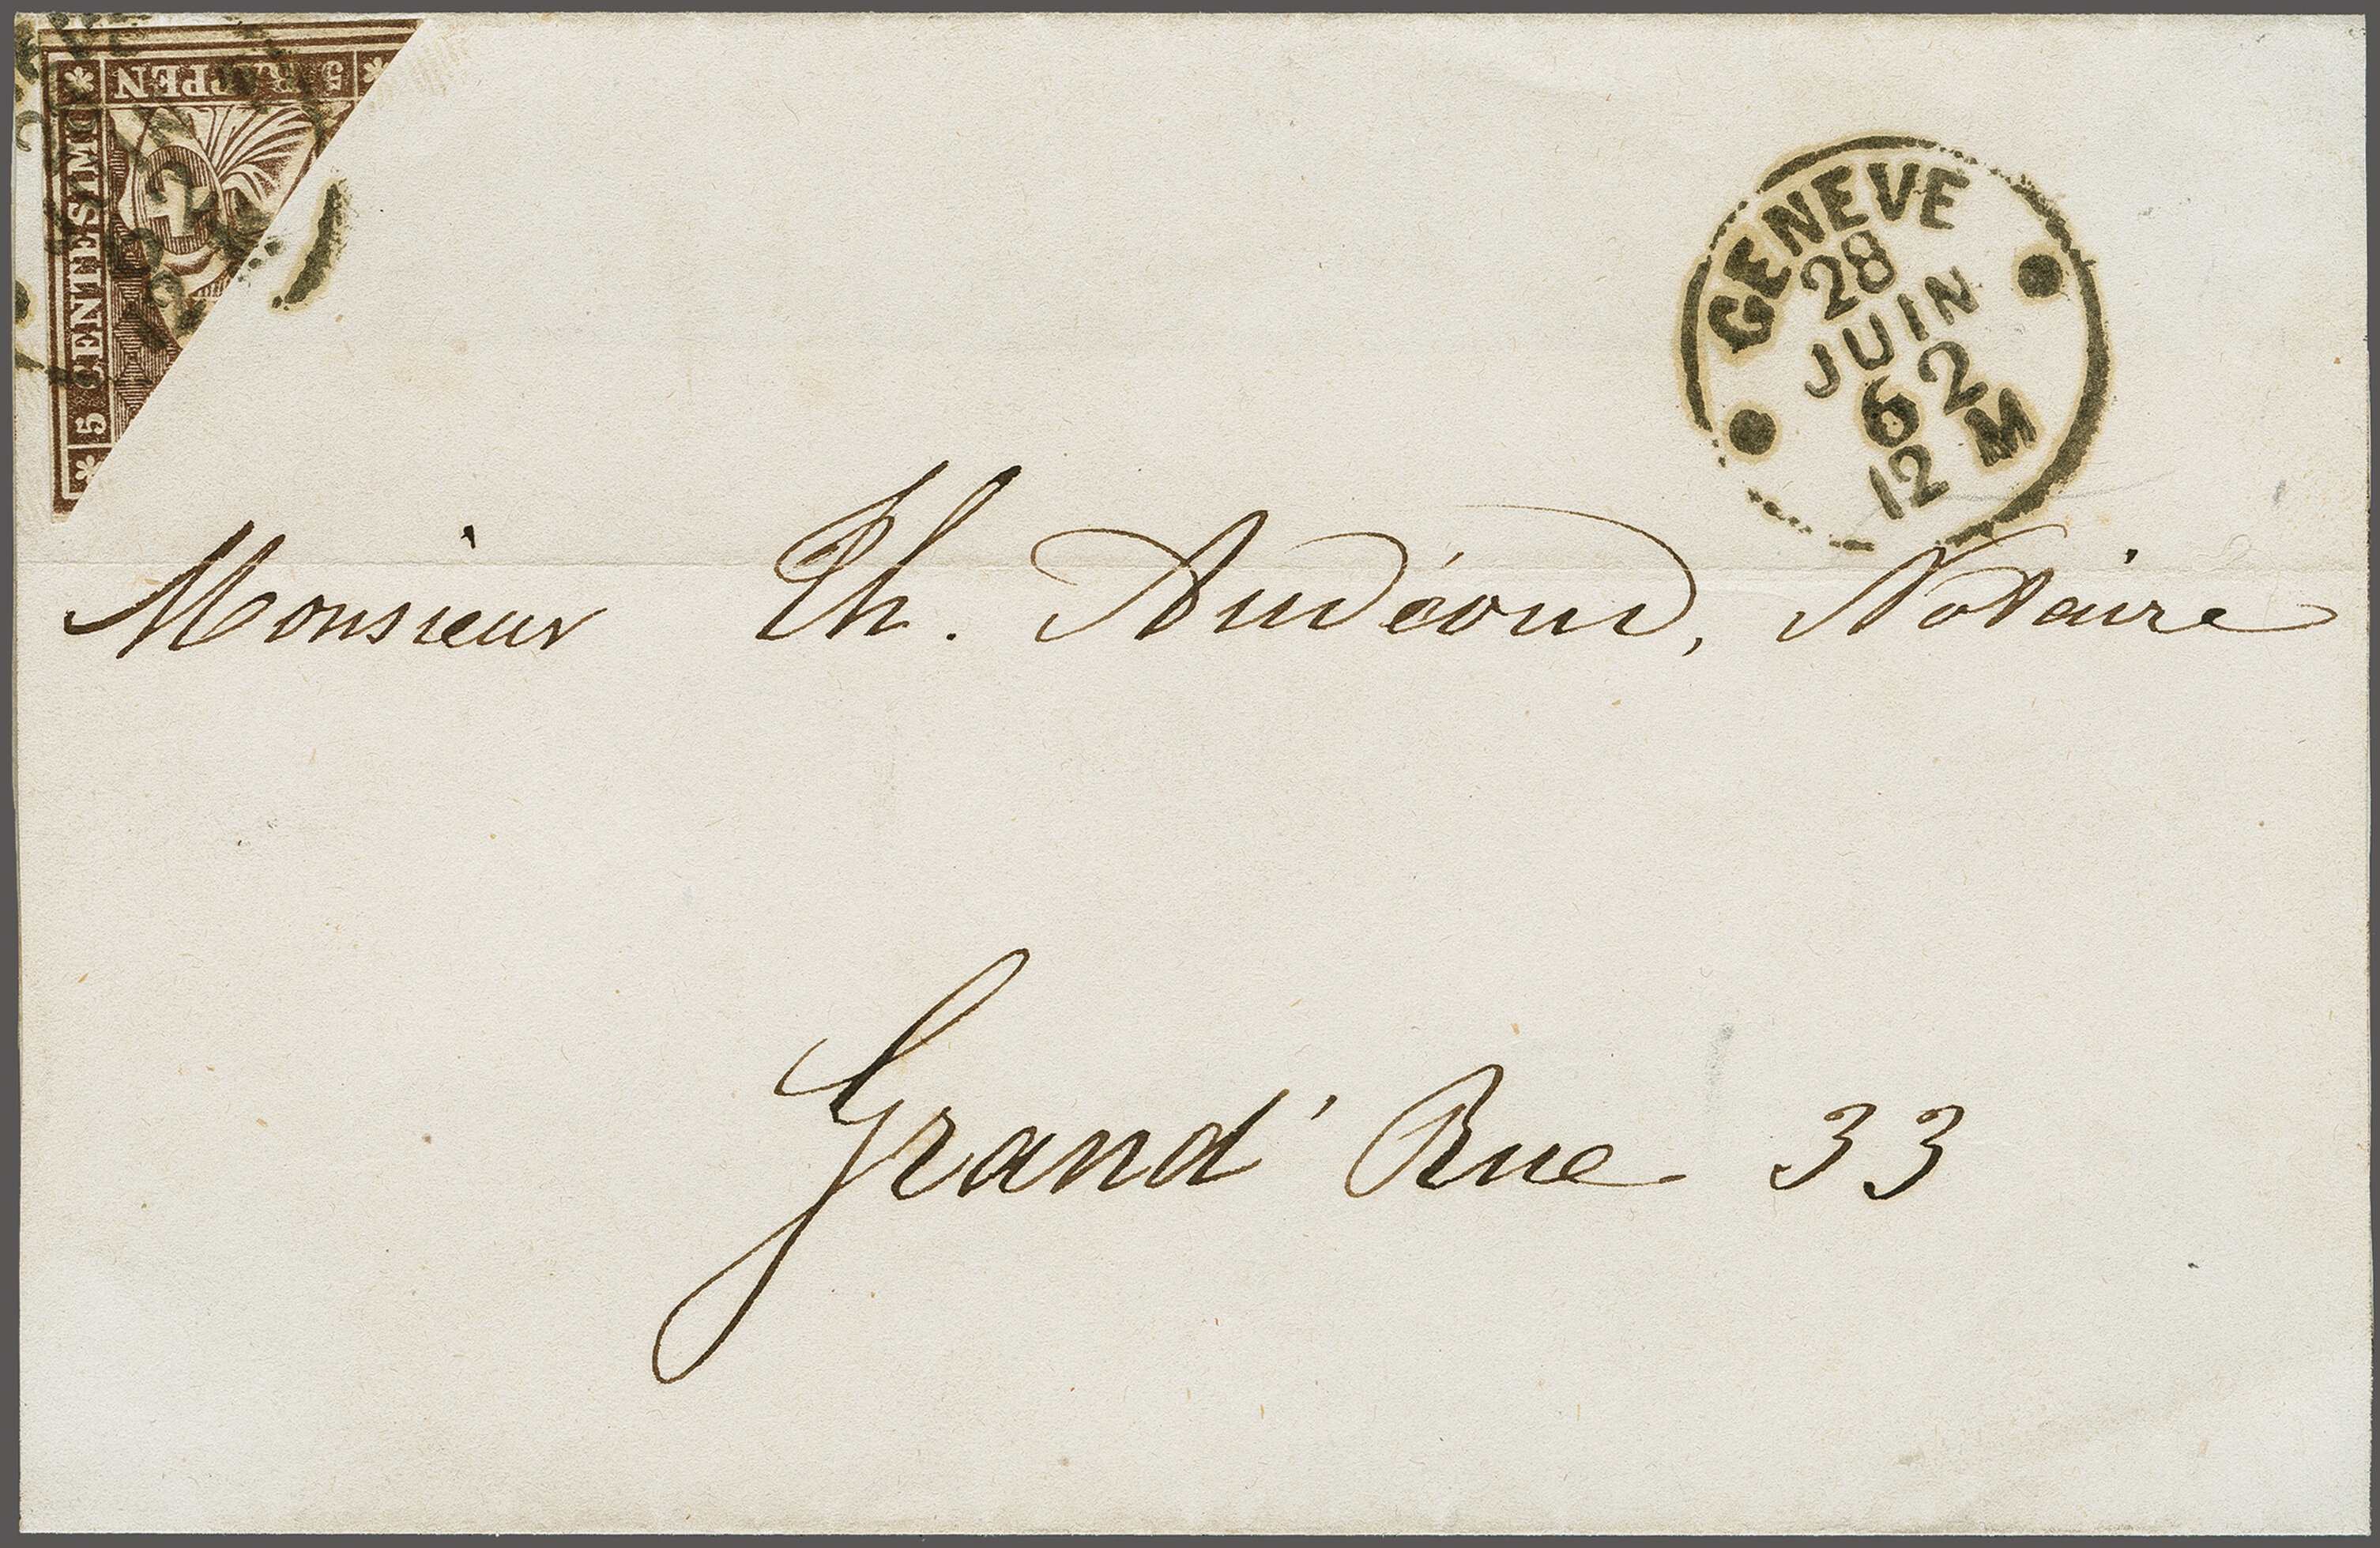 5 RAPPEN
5 CENTESIMI
GENEVE
28
JUIN
62
12 M
Monsieur Th. Audéoud, Notaire
Grand' Rue 33